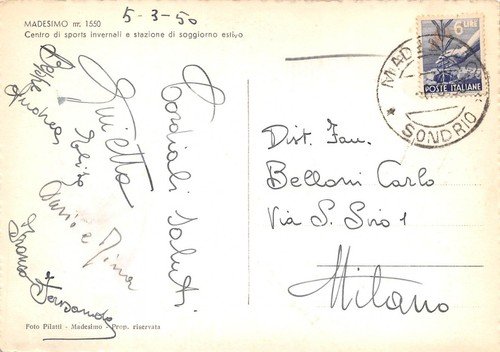 5-3-50
MADESIMO m. 1550
Centro di sports invernali e stazione di soggiorno estivo
6 LIRE
POSTE ITALIANE
SONDRIO
Cordiali Saluti
Dario e Nina
Franco
Dist. Fam.
Belloni Carlo
Via S. Siro 1
Milano
Foto Pilatti - Madesimo - Prop. riservata